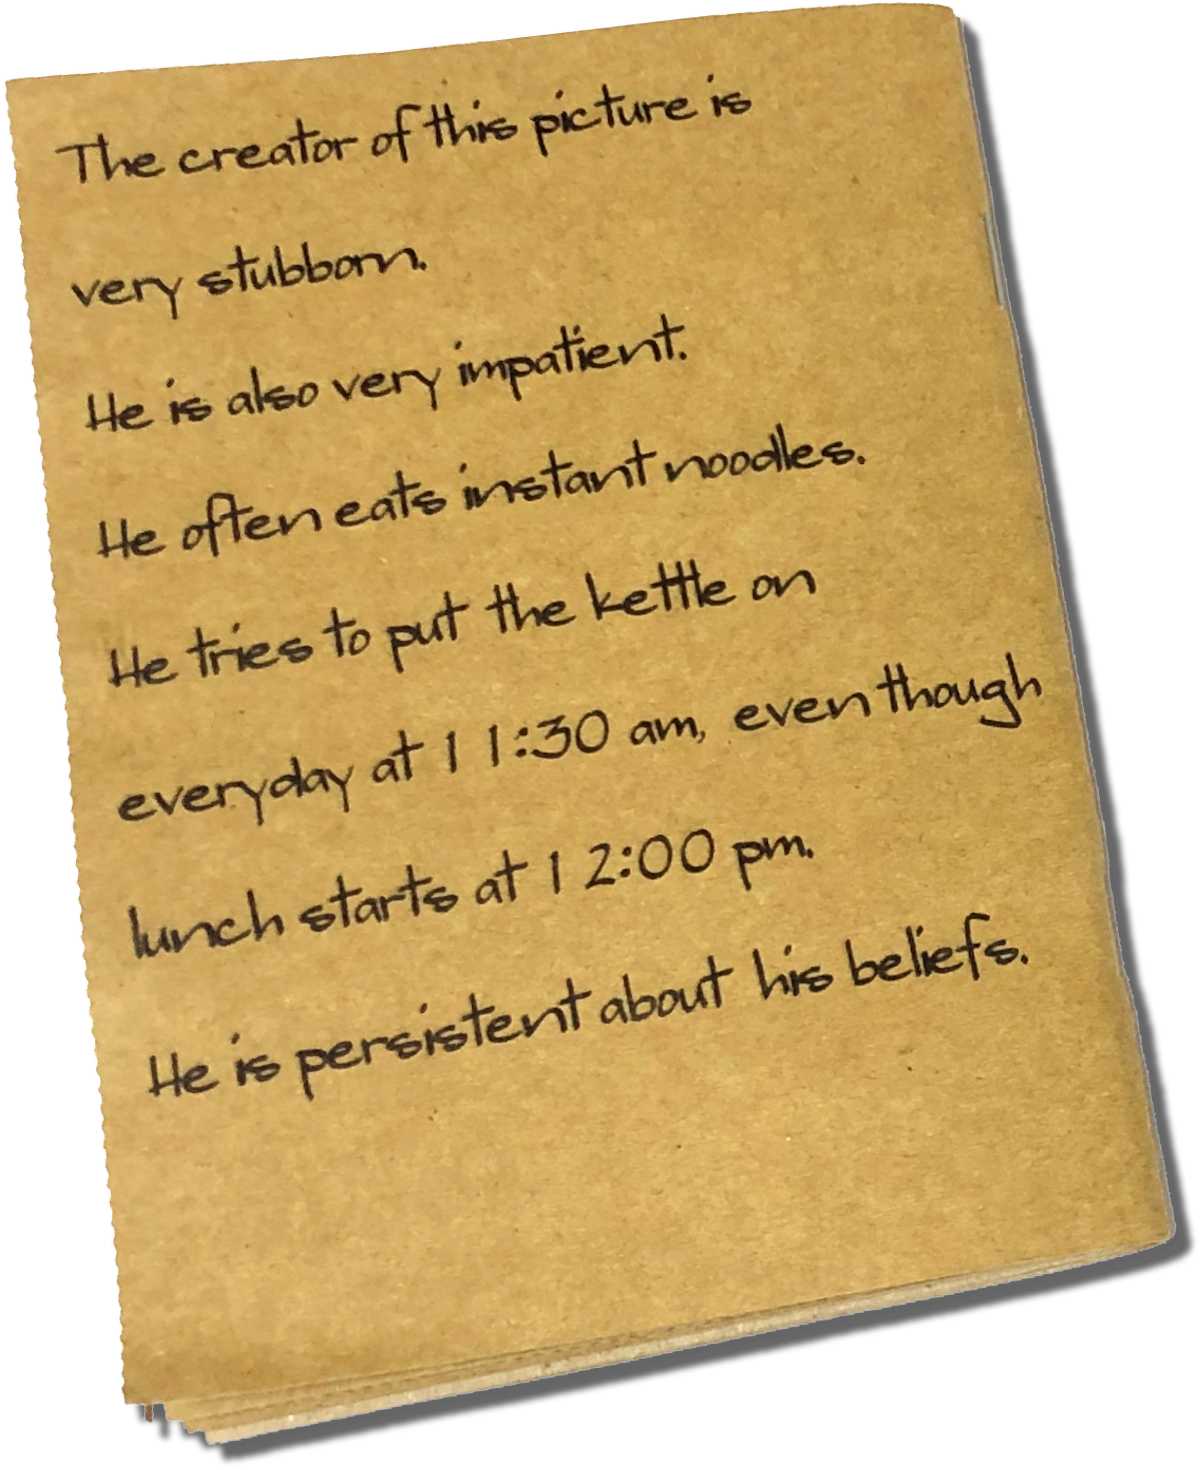 The creator of this picture is
very stubborn.
He is also very impatient.
He often eats instant noodles.
He tries to put the kettle on
everyday at 11:30 am, even though
lunch starts at 12:00 pm.
He is persistent about his beliefs.